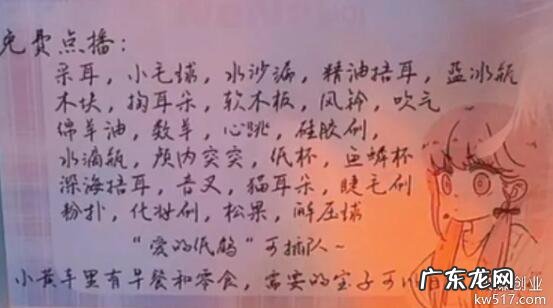 免费点播：
采耳，小毛球，水沙漏，精油掊耳，蓝冰瓶
木块，掏耳朵，软木板，风铃，吹气
绵羊油，数羊，心跳，硅胶刷，
水滴瓶，颅内突突，纸杯，鱼鳞杯
深海掊耳，音叉，猫耳朵，睫毛刷
粉扑，化妆刷，松果，解压球
“爱的低鸽”可插队~
小黄车里有早餐和零食，需要的宝子可以
广东龙网
创业
kw517.com